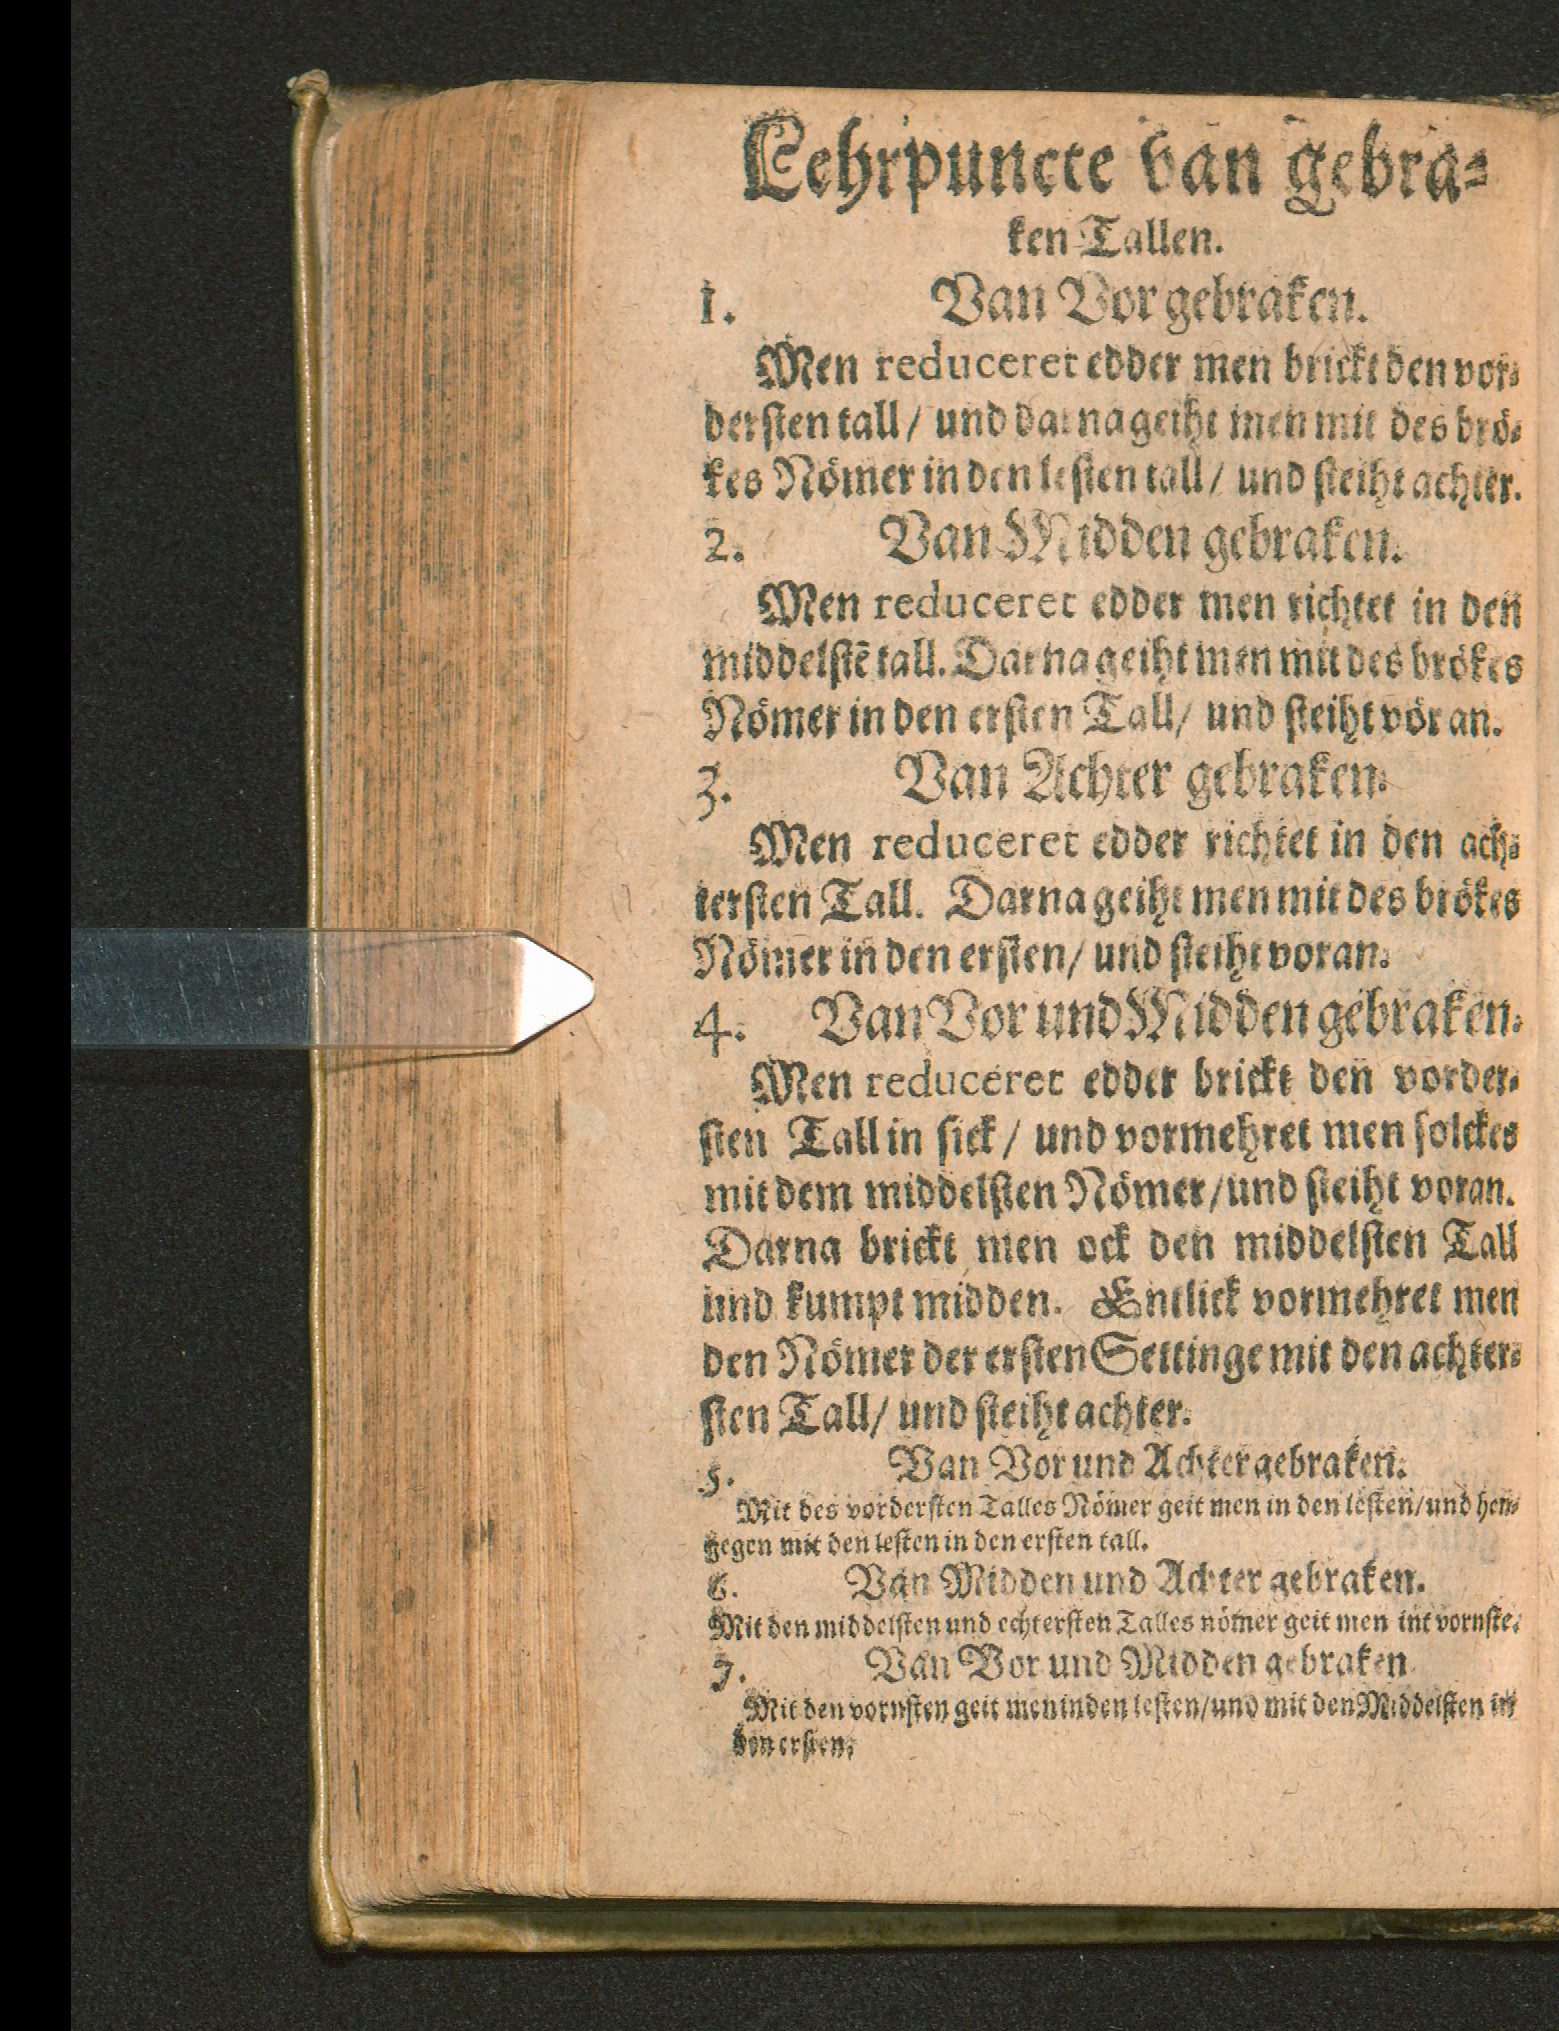 Lehrpuncte van gebra⸗
ken Tallen.
1. Van Vor gebraken.
Men reduceret edder men brickt den vor⸗
dersten tall / und darna geiht men mit des brö⸗
kes Nömer in den lesten tall / und steiht achter.
2. Van Midden gebraken.
Men reduceret edder men richtet in den
middelstē tall. Darna geiht men mit des brökes
Nömer in den ersten Tall / und steiht vör an.
3. Van Achter gebraken.
Men reduceret edder richtet in den ach⸗
tersten Tall. Darna geiht men mit des brökes
Nömer in den ersten / und steiht voran.
4. Van Vor und Midden gebraken.
Men reduceret edder brickt den vorder⸗
sten Tall in sick / und vormehret men solckes
mit dem middelsten Nömer / und steiht voran.
Darna brickt men ock den middelsten Tall
und kumpt midden. Entlick vormehret men
den Nömer der ersten Settinge mit den achter⸗
sten Tall / und steiht achter.
5. Van Vor und Achter gebraken.
Mit des vordersten Talles Nömer geit men in den lesten / und hen⸗
gegen mit den lesten in den ersten tall.
6. Van Midden und Achter gebraken.
Mit den middelsten und echtersten Talles nömer geit men int vornste.
7. Van Vor und Midden gebraken
Mit den vornsten geit men in den lesten / und mit den Middelsten in
den ersten.